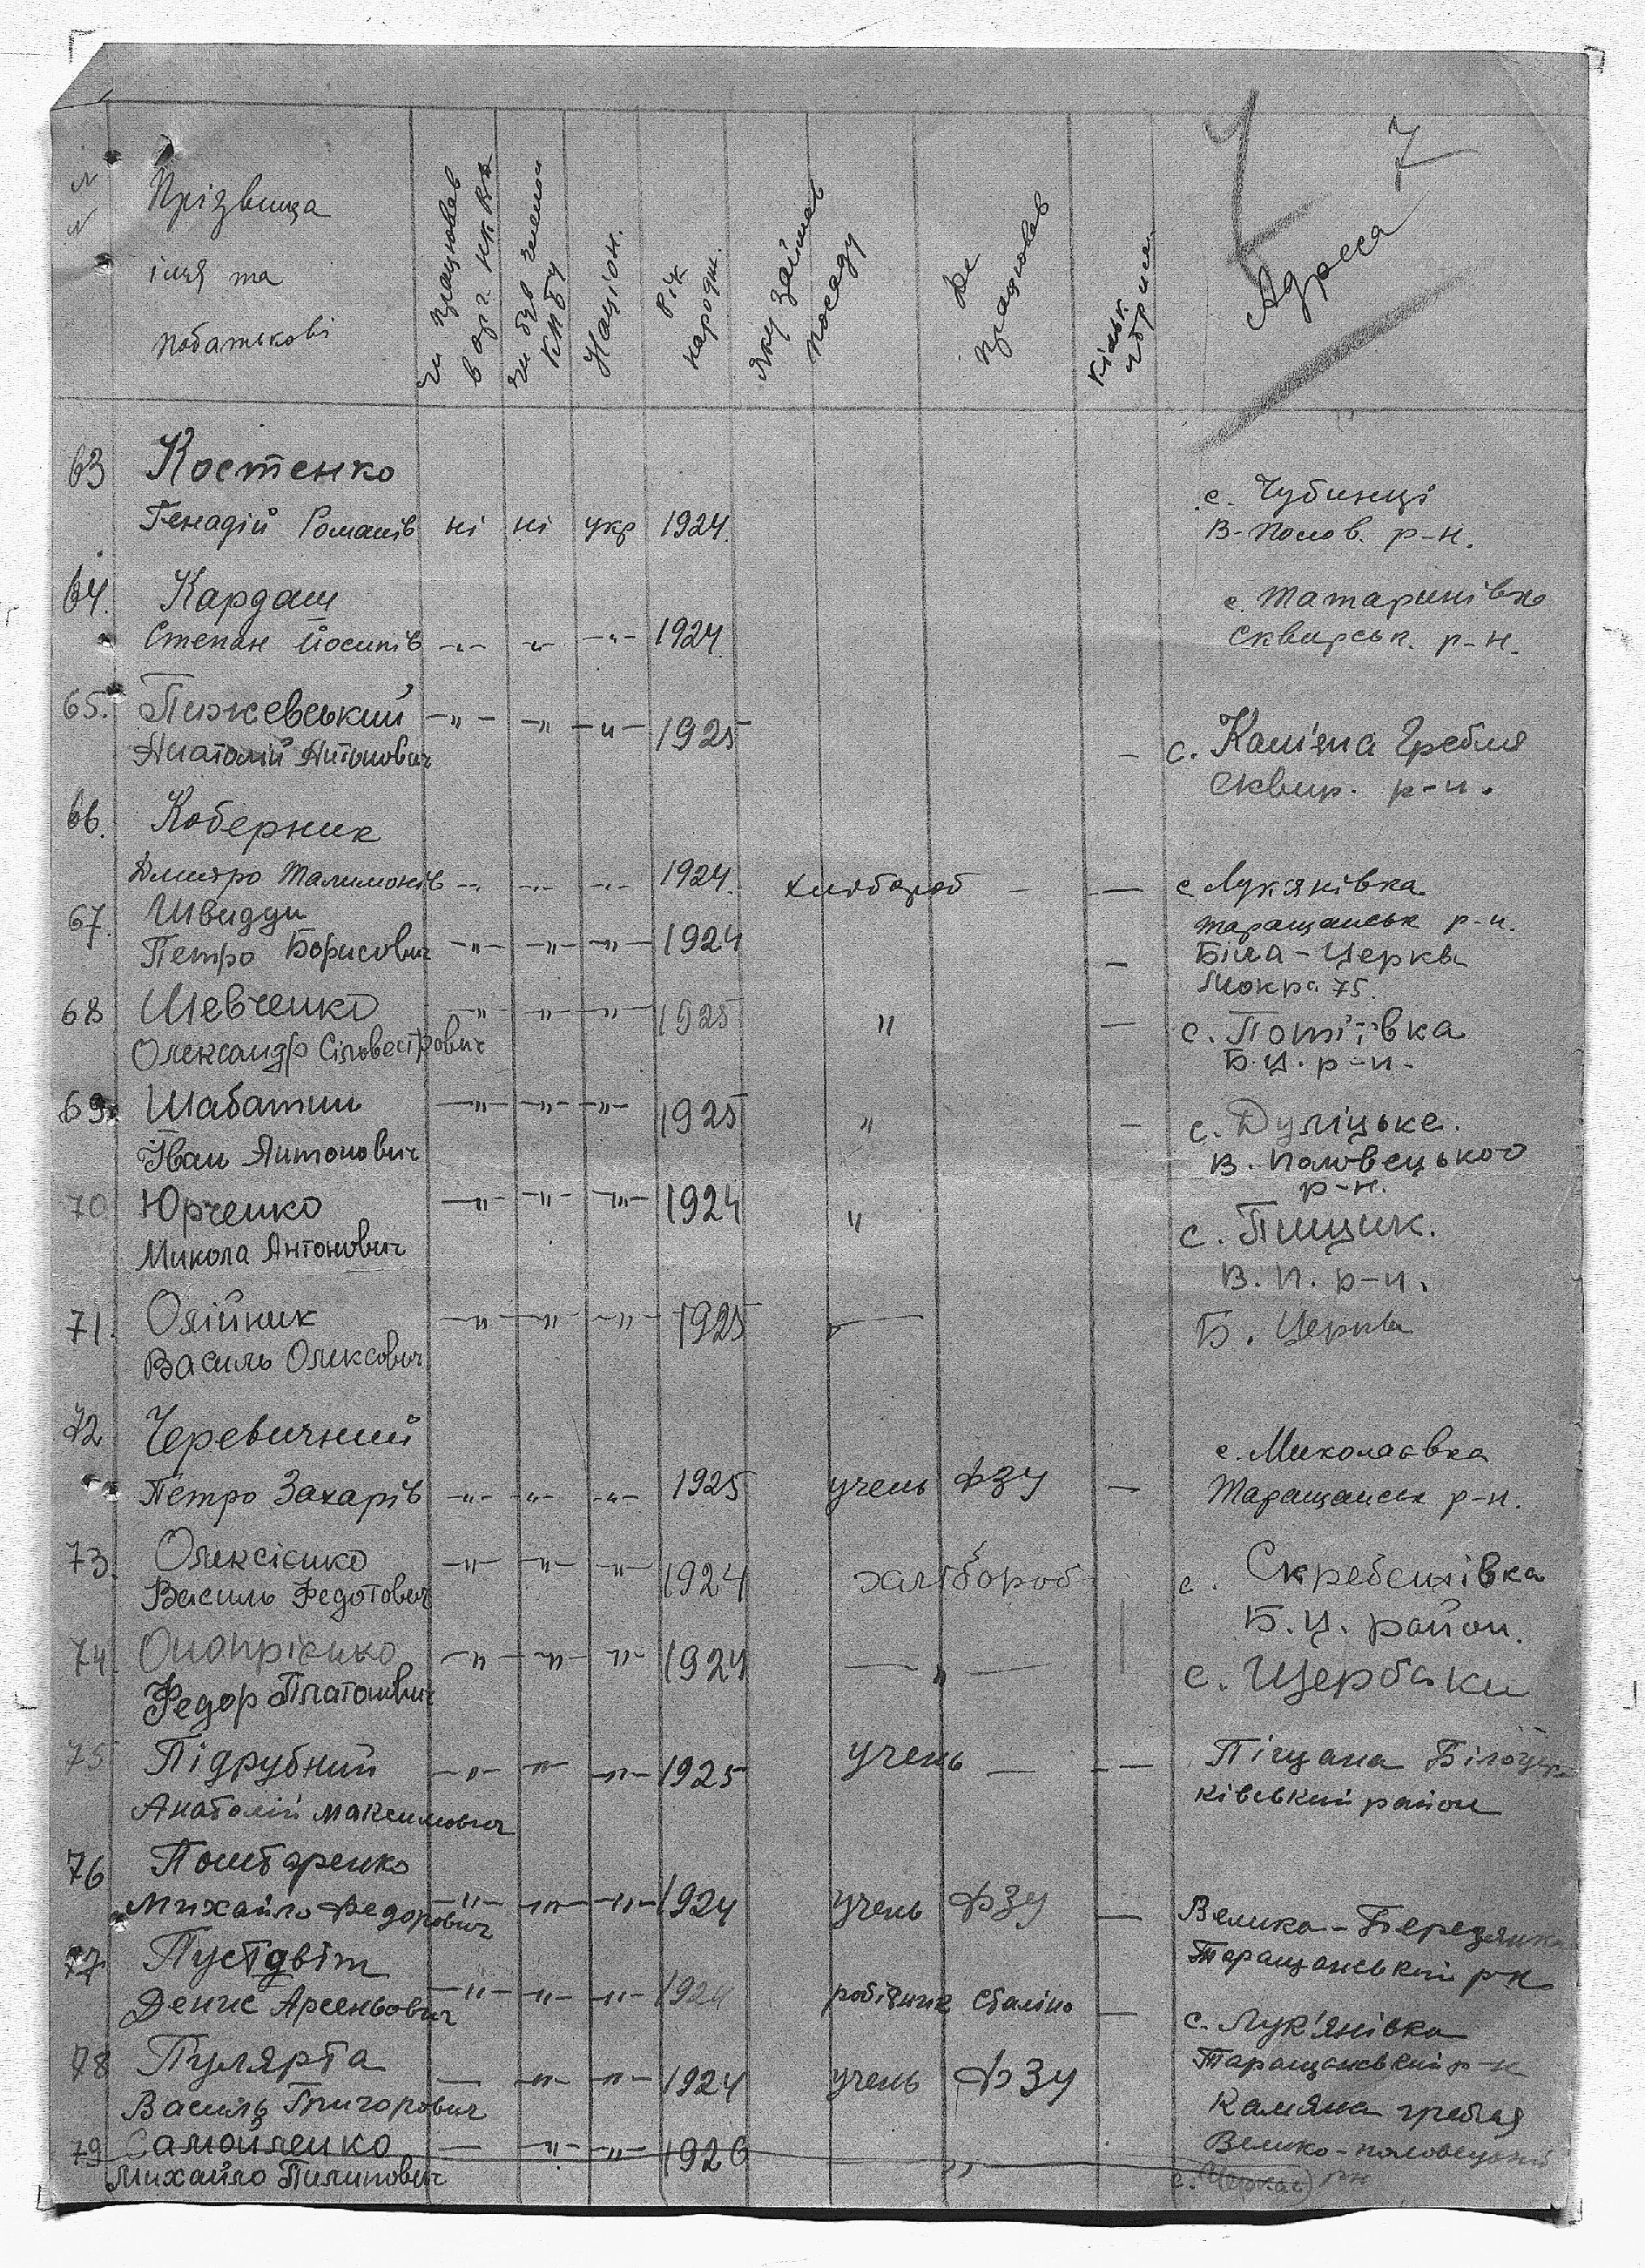 № №
Прізвища
імя та
побатькові
чи працював
в орг. НКВД
чи був членом
КПбУ
Націон.
Рік
народж.
Яку займав
посаду
Де
працював
Кільк.
Адреса
7
63 Костенко
Генадій Романів ні ні укр 1924. с. Чубинці
В-Полов. р-н.
64. Кардаш с. Татаринівка
Степан Йосипів -"- -"- -"- 1924. Сквирськ. р-н.
65. Пижевський -"- -"- -"- 1925 — с. Камʼяна Гребля
Анатолій Антонович Сквир. р-н.
66. Коберник
Дмитро Талимонів -"- -"- -"- 1924. хлібороб — — с Лукянівка
Таращанськ р-н.
67. Швидди
Петро Борисович -"- -"- -"- 1924 — Біла-Церква
Мокра 75.
68 Шевченко -"- -"- -"- 1925 " — с. Потіївка
Олександр Сільвестрович Б.Ц. р-н.
69. Шабатин -"- -"- -"- 1925 " — с. Дуліцьке.
Іван Антонович В. Половецького
р-н.
70 Юрченко -"- -"- -"- 1924 " с. Пищик.
Микола Антонович В. П. р-н.
71. Олійник -"- -"- -"- 1925 — Б. Церква
Василь Олексович
72 Черевичний с. Миколаєвка
Петро Захарів -"- -"- -"- 1925 учень ФЗУ — Таращанськ р-н.
73. Олексієнко -"- -"- -"- 1924 халібороб с. Скребешівка
Василь Федотович Б.Ц. район.
74. Онопрієнко -"- -"- -"- 1924 — " — с. Щербаки
Федор Платонович
75 Підрубний -"- -"- -"- 1925 учень — — Піщана Білоцер-
Анатолій Максимович ківський район
76 Понтаренко
Михайло Федорович -"- -"- -"- 1924 учень ФЗУ — Велика-Березянка
Таращанський р-н
77. Пустовіт
Денис Арсеньович -"- -"- -"- 1924 робітник Сталіно — с. Лук'янівка
Таращанський р-н
78 Пулярта — -"- -"- 1924 учень ФЗУ Камяна гребля
Василь Григорович Велико-половецький
79 Самойленко — -"- -"- 1926 " рн
Михайло Пилипович с. Черкас